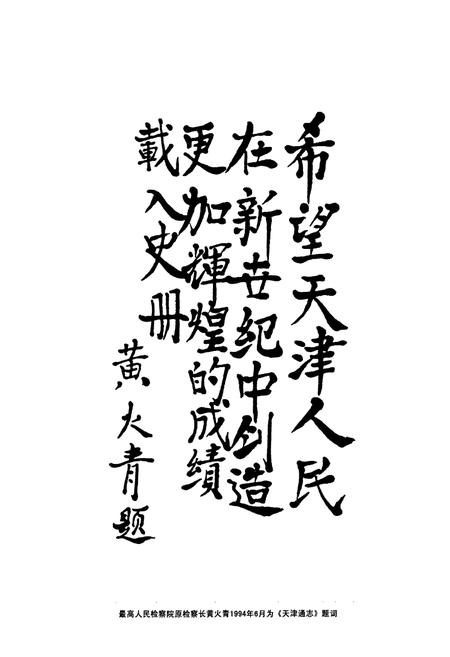 希望天津人民
在新世纪中创造
更加輝煌的成績
載入史册
黄火青题
最高人民检察院原检察长黄火青1994年6月为《天津通志》题词